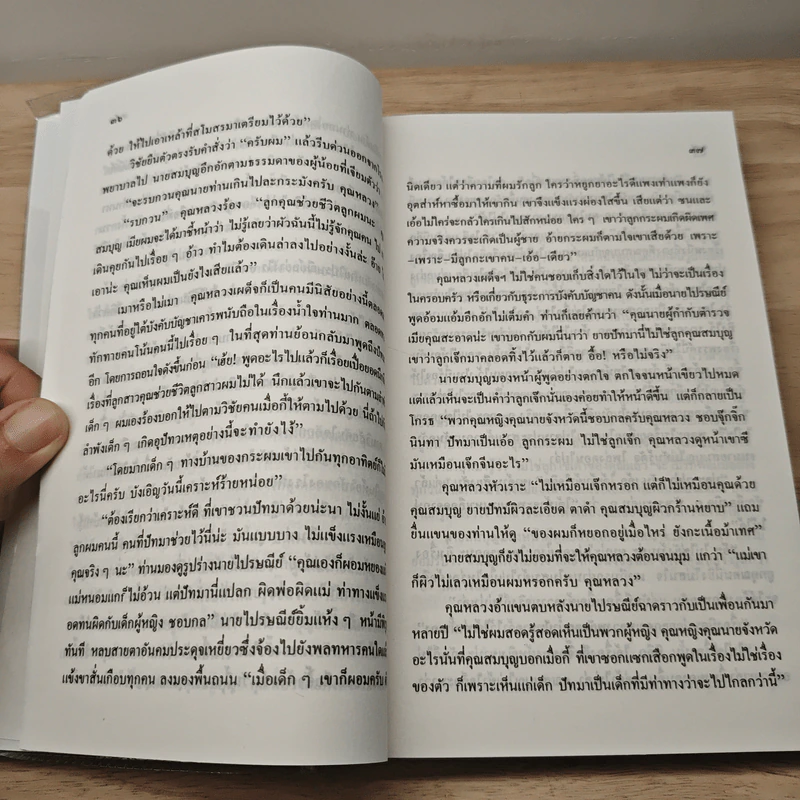 ๓๖
ด้วย ให้ไปเอาเหล้าที่สโมสรมาเตรียมไว้ด้วย”
วิชัยยืนตัวตรงรับคำสั่งว่า “ครับผม” แล้วรีบด่วนออกจาก
พยาบาลไป นายสมบุญอีกอักตามธรรมดาของผู้น้อยที่เจียมตัวว่า
“จะรบกวนคุณนายท่านเกินไปละกระมังครับ คุณหลวง”
“รบกวน” คุณหลวงร้อง “ลูกคุณช่วยชีวิตลูกผมนะ
สมบุญ เมียผมจะได้มาชี้หน้าว่า ไม่รู้เลยว่าผัวฉันนี้ไม่รู้จักคุณคน
เดินคุยกันไปเรื่อย ๆ อ้าว ทำไมต้องเดินล่าลงไปอย่างงั้นล่ะ
เอาน่ะ คุณเห็นผมเป็นยังไงเสียแล้ว”
เมาหรือไม่เมา คุณหลวงเผด็จก็เป็นคนมีนิสัยอย่างนี้
ทุกคนที่อยู่ใต้บังคับบัญชาเคารพนับถือในเรื่องน้ำใจท่านมาก
ทักทายคนโน้นคนนี้ไปเรื่อย ๆ ในที่สุดท่านย้อนกลับมาพูดถึง
อีก โดยการถอนใจดังขึ้นก่อน “เฮ้ย! พูดอะไรไปแล้วก็เรื่อยเปื่อย
เรื่องที่ลูกสาวคุณช่วยชีวิตลูกสาวผมไม่ได้ นึกแล้วเขาจะไปกันตาม
เด็ก ๆ ผมเองร้องบอกให้ไปตามวิชัยคนเมื่อกี้ให้ตามไปด้วย
ลำพังเด็ก ๆ เกิดอุปัทวเหตุอย่างนี้จะทำยังไง้”
“โดยมากเด็ก ๆ ทางบ้านของกระผมเขาไปกันทุกอาทิตย์
อะไรนี่ครับ บังเอิญวันนี้เคราะห์ร้ายหน่อย”
“ต้องเรียกว่าเคราะห์ดี ที่เขาชวนปัทมาด้วยน่ะนา ไม่งั้นแย่
ลูกผมคนนี้ คนที่ปัทมาช่วยไว้นี่น่ะ มันแบบบาง ไม่แข็งแรง
คุณจริง ๆ นะ” ท่านมองดูรูปร่างนายไปรษณีย์ “คุณเองก็ผอม
แม่หนอมแกก็ไม่อ้วน แต่ปัทมานี่แปลก ผิดพ่อผิดแม่ ท่าทาง
อดทนผิดกับเด็กผู้หญิง ชอบกล” นายไปรษณีย์ยิ้มแห้ง ๆ
ทันที หลบสายตาอันคมประดุจเหยี่ยวซึ่งจ้องไปยังพลทหารคนใด
แข้งขาสั่นเกือบทุกคน ลงมองพื้นถนน “เมื่อเด็ก ๆ เขาก็ผอมครับ
๓๗
นิดเดียว แต่ว่าความที่ผมรักลูก ใครว่าหยูกยาอะไรดีแพงเท่าแพงก็ยัง
อุตส่าห์หาซื้อมาให้เขากิน เขาจึงแข็งแรงผ่องใสขึ้น เสียแต่ว่า ซนและ
เอ้อไม่ใคร่จะกลัวใครเกินไปสักหน่อย ใคร ๆ เขาว่าลูกกระผมเกิดผิดเพศ
ความจริงควรจะเกิดเป็นผู้ชาย อ้ายกระผมก็ตามใจเขาเสียด้วย เพราะ
-เพราะ-มีลูกกะเขาคน-เอ้อ-เดียว”
คุณหลวงเผด็จฯ ไม่ใช่คนชอบเก็บสิ่งใดไว้ในใจ ไม่ว่าจะเป็นเรื่อง
ในครอบครัว หรือเกี่ยวกับธุระการบังคับบัญชาคน ดังนั้นเมื่อนายไปรษณีย์
พูดอ้อมแอ้มอีกอักไม่เต็มคำ ท่านก็เลยค้านว่า “คุณนายผู้กำกับตำรวจ
เมียคุณสะอาดน่ะ เขาบอกกับผมนี่นาว่า ยายปัทมานี่ไม่ใช่ลูกคุณสมบุญ
เขาว่าลูกเจ๊กมาคลอดทิ้งไว้แล้วก็ตาย อื้อ! หรือไม่จริง”
นายสมบุญมองหน้าผู้พูดอย่างตกใจ ตกใจจนหน้าเขียวไปหมด
แต่แล้วเห็นจะเป็นคำว่าลูกเจ๊กนั่นเองค่อยทำให้หน้าดีขึ้น แต่ก็กลายเป็น
โกรธ “พวกคุณหญิงคุณนายจังหวัดนี้ชอบกลครับคุณหลวง ชอบจุ๊กจิ๊ก
นินทา ปัทมาเป็นเอ้อ ลูกกระผม ไม่ใช่ลูกเจ๊ก คุณหลวงดูหน้าเขาซี
มันเหมือนเจ๊กจีนอะไร”
คุณหลวงหัวเราะ “ไม่เหมือนเจ๊กหรอก แต่ก็ไม่เหมือนคุณด้วย
คุณสมบุญ ยายปัทม์ผิวละเอียด ตาดำ คุณสมบุญผิวกร้านหยาบ” แถม
ยื่นแขนของท่านให้ดู “ของผมก็หยอกอยู่เมื่อไหร่ ยังกะเนื้อม้าเทศ”
นายสมบุญก็ยังไม่ยอมที่จะให้คุณหลวงต้อนจนมุม แกว่า “แม่เขา
ก็ผิวไม่เลวเหมือนผมหรอกครับ คุณหลวง”
คุณหลวงอ้าแขนตบหลังนายไปรษณีย์ฉาดราวกับเป็นเพื่อนกันมา
หลายปี “ไม่ใช่ผมสอดรู้สอดเห็นเป็นพวกผู้หญิง คุณหญิงคุณนายจังหวัด
อะไรนั่นที่คุณสมบุญบอกเมื่อกี้ ที่เขาซอกแซกเสือกพูดในเรื่องไม่ใช่เรื่อง
ของตัว ก็เพราะเห็นแก่เด็ก ปัทมาเป็นเด็กที่มีท่าทางว่าจะไปไกลกว่านี้”